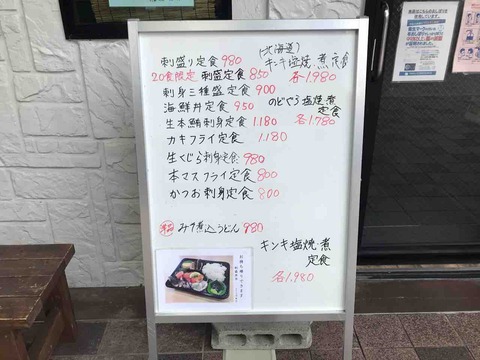 刺盛り定食 980
20食限定 刺盛定食 850
刺身三種盛定食 900
海鮮丼定食 950
生本鮪刺身定食 1.180
カキフライ定食 1.180
生くじら刺身定食 980
本マスフライ定食 800
かつお刺身定食 800
みそ煮込うどん 980
(北海道)
キンキ塩焼・煮定食
各1.980
のどぐろ塩焼・煮
定食
各1.780
キンキ塩焼・煮
定食
各1.980
お持ち帰りできます